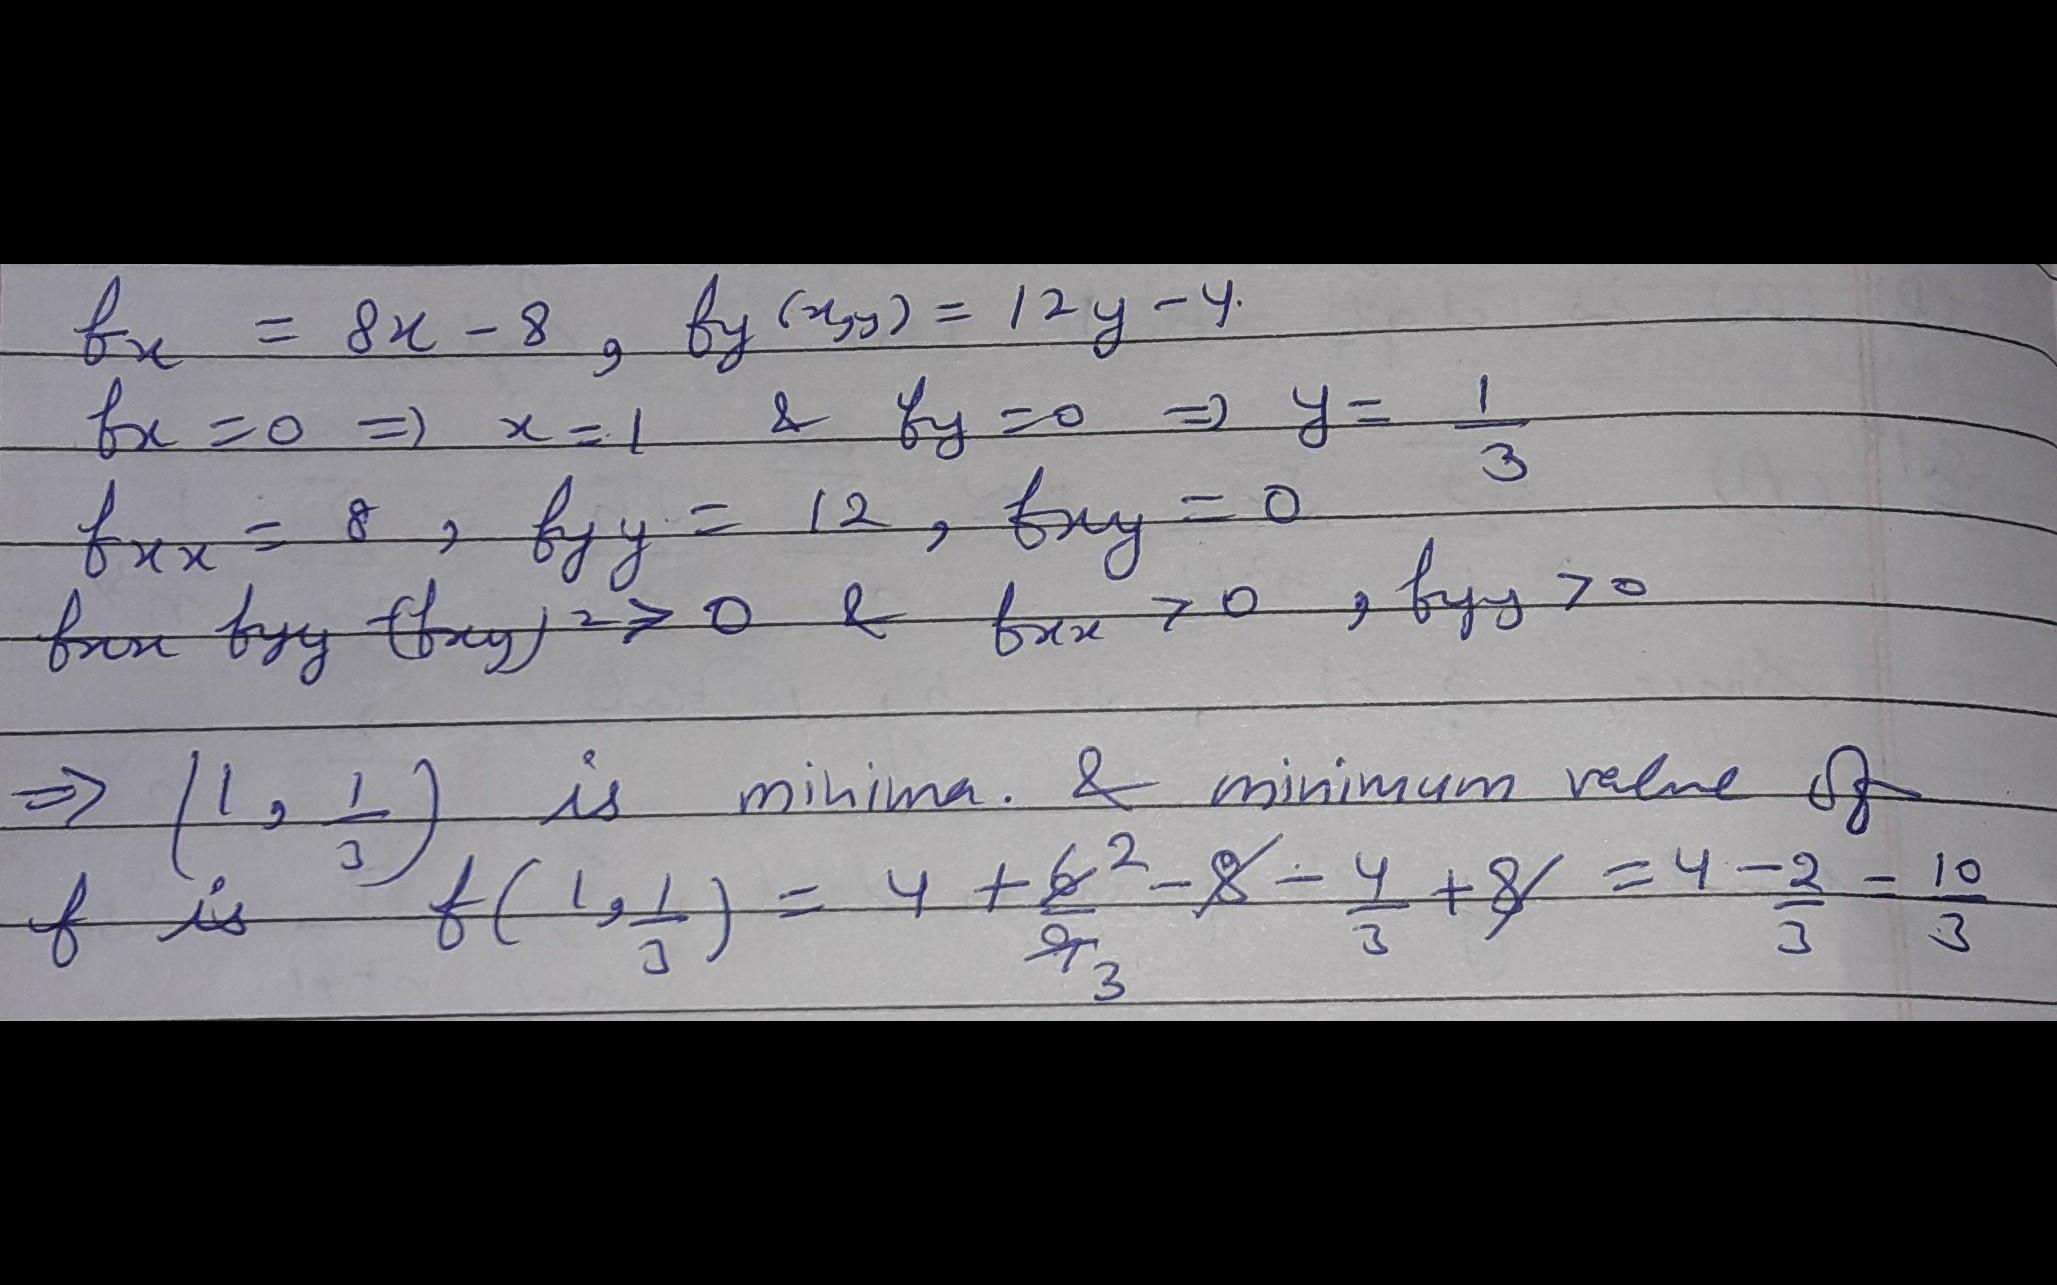 fx = 8x - 8, fy (x,y) = 12y - 4.
fx = 0 => x = 1 & fy = 0 => y = 1/3
fxx = 8, fyy = 12, fxy = 0
fxx fyy - (fxy)² > 0 & fxx > 0, fyy > 0
=> (1, 1/3) is minima. & minimum value of
f is f(1, 1/3) = 4 + 6/9 2/3 - 8 - 4/3 + 8 = 4 - 2/3 = 10/3